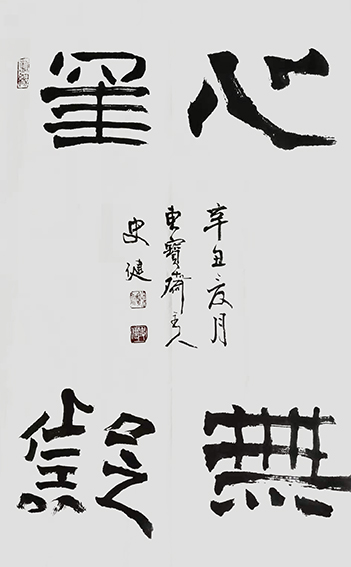 心無
罣礙
辛丑夏月
東寶齋主人
史健